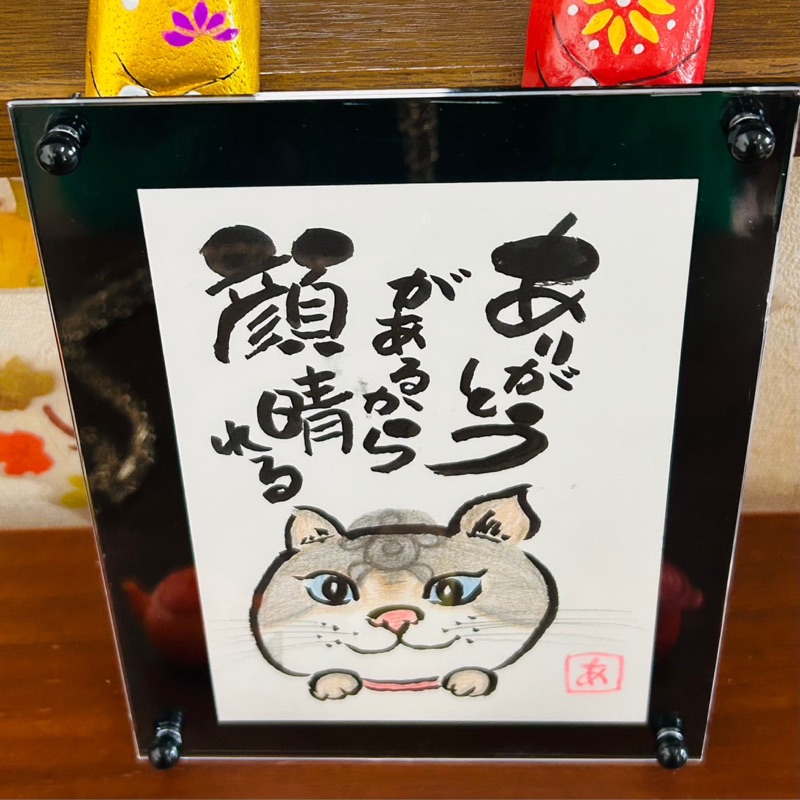 ありがとう
があるから
顔晴れる
あ